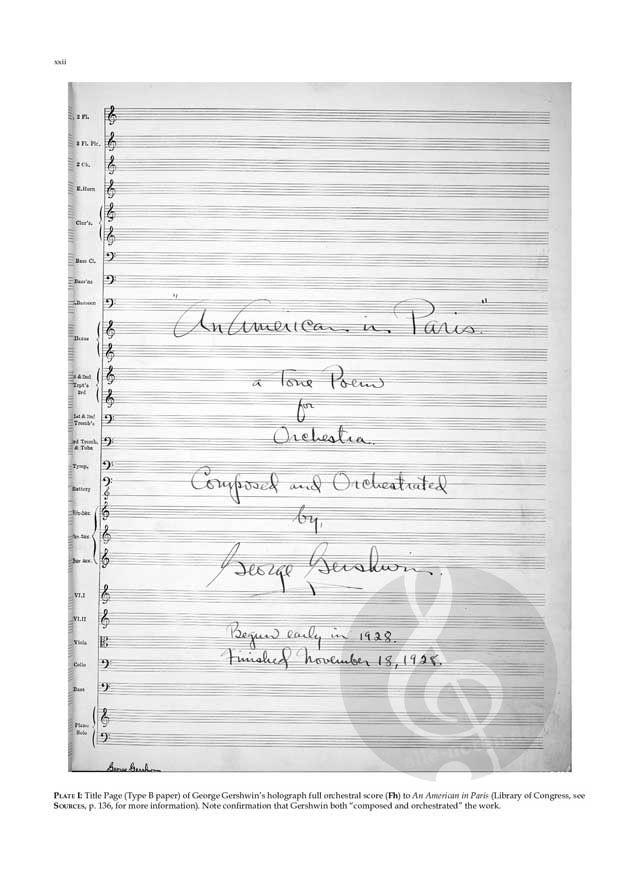 xxii
2 Fl.
2 Fl. Pic.
2 Ob.
E. Horn
Clar's.
Bass Cl.
Bass'ns
Bassoon
Horns
1 & 2nd
Trpt's
3rd
1st & 2nd
Tromb's
3rd Tromb.
& Tuba
Tymp.
Battery
"An American in Paris"
a Tone Poem
for
Orchestra.
Composed and Orchestrated
by,
George Gershwin.
Vl.I
Vl.II
Viola
Cello
Bass
Piano
Solo
Begun early in 1928.
Finished November 18, 1928.
George Gershwin
PLATE I: Title Page (Type B paper) of George Gershwin's holograph full orchestral score (Fh) to An American in Paris (Library of Congress, see
SOURCES, p. 136, for more information). Note confirmation that Gershwin both "composed and orchestrated" the work.